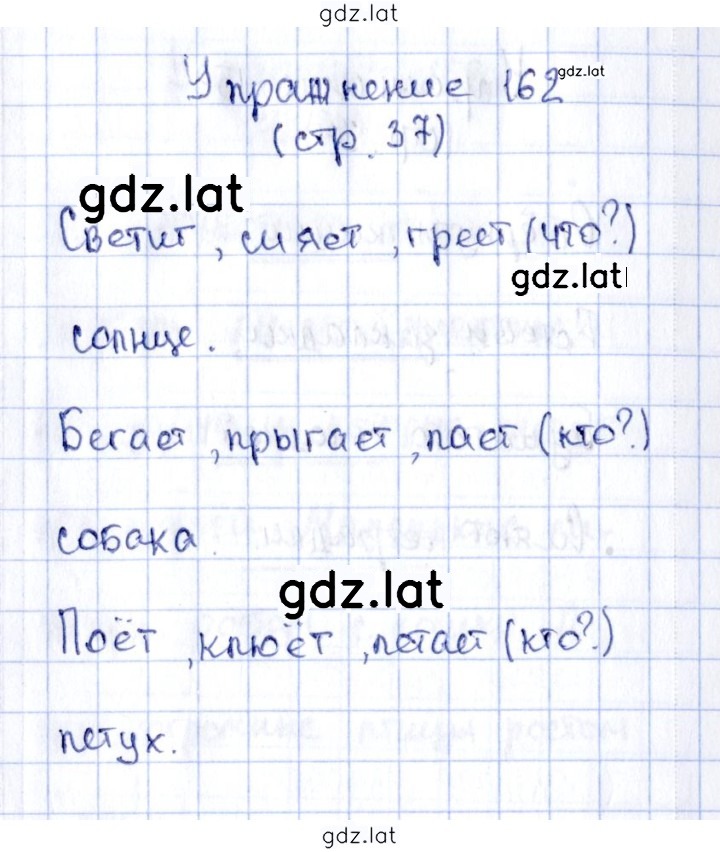 gdz.lat
Упражнение 162 gdz.lat
(стр. 37)
gdz.lat
Светит, сияет, греет (что?)
gdz.lat
солнце.
Бегает, прыгает, лает (кто?)
собака.
gdz.lat
Поёт, клюёт, летает (кто?)
петух.
gdz.lat